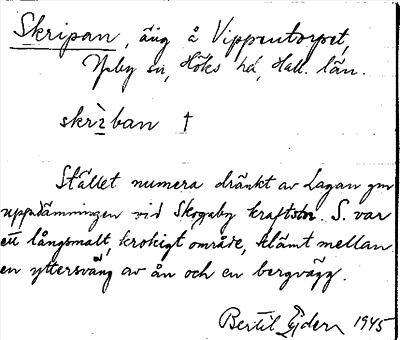 Skripan, äng å Vippentorpet,
Ysby sn, Höks hd, Hall. län.
skrìban †
Stället numera dränkt av Lagan gm
uppdämningen vid Skogaby kraftstn. S. var
ett långsmalt, krokigt område, klämt mellan
en yttersväng av ån och en bergvägg.
Bertil Ejder 1945